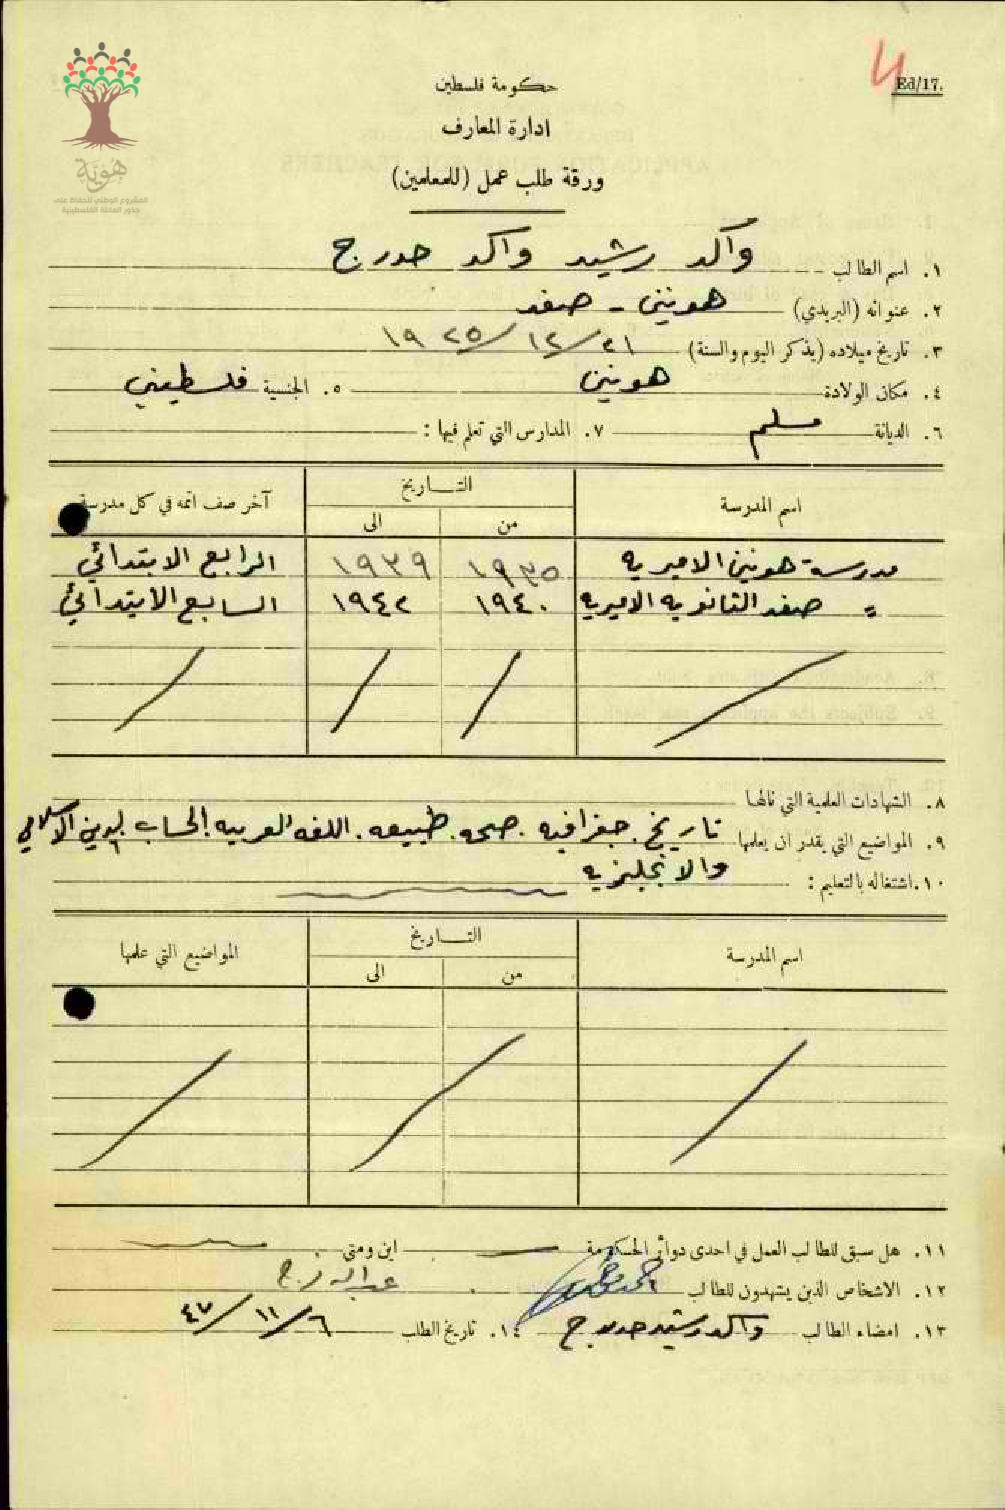 هُويَّة
المشروع الوطني للحفاظ على
جذور العائلة الفلسطينية
Ed/17.
4
حكومة فلسطين
ادارة المعارف
ورقة طلب عمل (للمعلمين)
١. اسم الطالب واكد رشيد واكد حدرج
٢. عنوانه (البريدي) هونين - صفد
٣. تاريخ ميلاده (يذكر اليوم والسنة) ٣١/١٢/١٩٢٥
٤. مكان الولادة هونين ٥. الجنسية فلسطيني
٦. الديانة مسلم ٧. المدارس التي تعلم فيها :
اسم المدرسة التاريخ آخر صف اتمه في كل مدرسة
من الى
مدرسة هونين الاميريه ١٩٣٥ ١٩٣٩ الرابع الابتدائي
〃 صفد الثانويه الاميريه ١٩٤٠ ١٩٤٢ السابع الابتدائي
٨. الشهادات العلمية التي نالها
٩. المواضيع التي يقدر ان يعلمها تاريخ. جغرافيه. صحه. طبيعه. اللغه العربيه. الحساب. الدين الاسلامي
والانجليزيه
١٠. اشتغاله بالتعليم :
اسم المدرسة التاريخ المواضيع التي علمها
من الى
١١. هل سبق للطالب العمل في احدى دوائر الحكومة اين ومتى
١٢. الاشخاص الذين يشهدون للطالب
١٣. امضاء الطالب واكد رشيد حدرج ١٤. تاريخ الطلب ٦/١١/٤٧